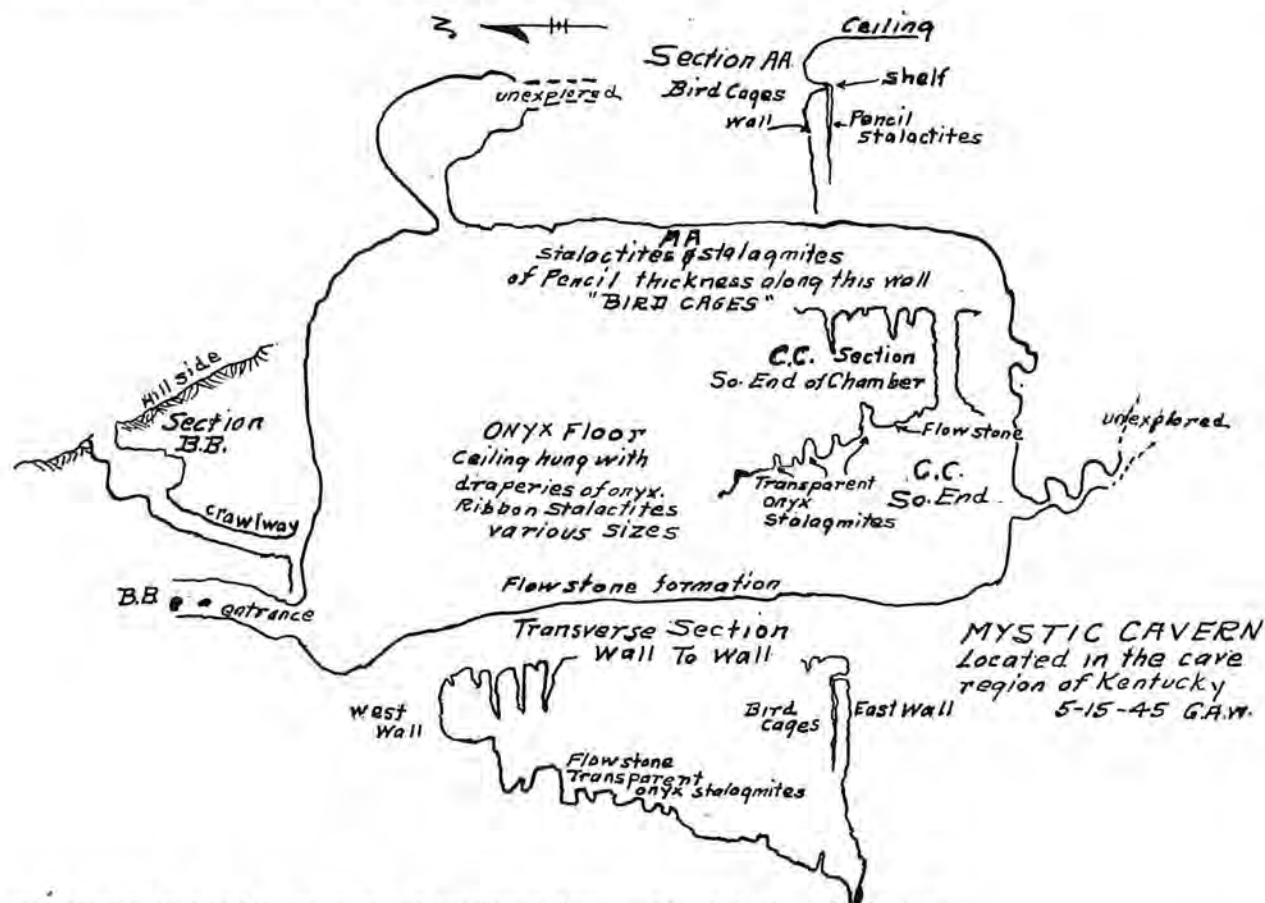 N
Ceiling
Section AA
Bird Cages
Wall
Shelf
Pencil
Stalactites
unexplored
AA
Stalactites & Stalagmites
of Pencil thickness along this wall
"BIRD CAGES"
C.C. Section
So. End of Chamber
Flowstone
Transparent
onyx
Stalagmites
C.C.
So. End
unexplored
Hillside
Section
B.B.
Crawlway
ONYX FLOOR
Ceiling hung with
draperies of onyx.
Ribbon Stalactites
various sizes
B.B.
entrance
Flowstone formation
Transverse Section
Wall To Wall
West
Wall
Bird
Cages
East Wall
Flowstone
Transparent
onyx stalagmites
MYSTIC CAVERN
Located in the cave
region of Kentucky
5-15-45 G.A.W.